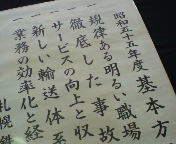 昭和五十五年度基本方
一 規律ある明るい職場
一 徹底した事故
一 サービスの向上と収
一 新しい輸送体系
一 業務の効率化と経
札幌鉄